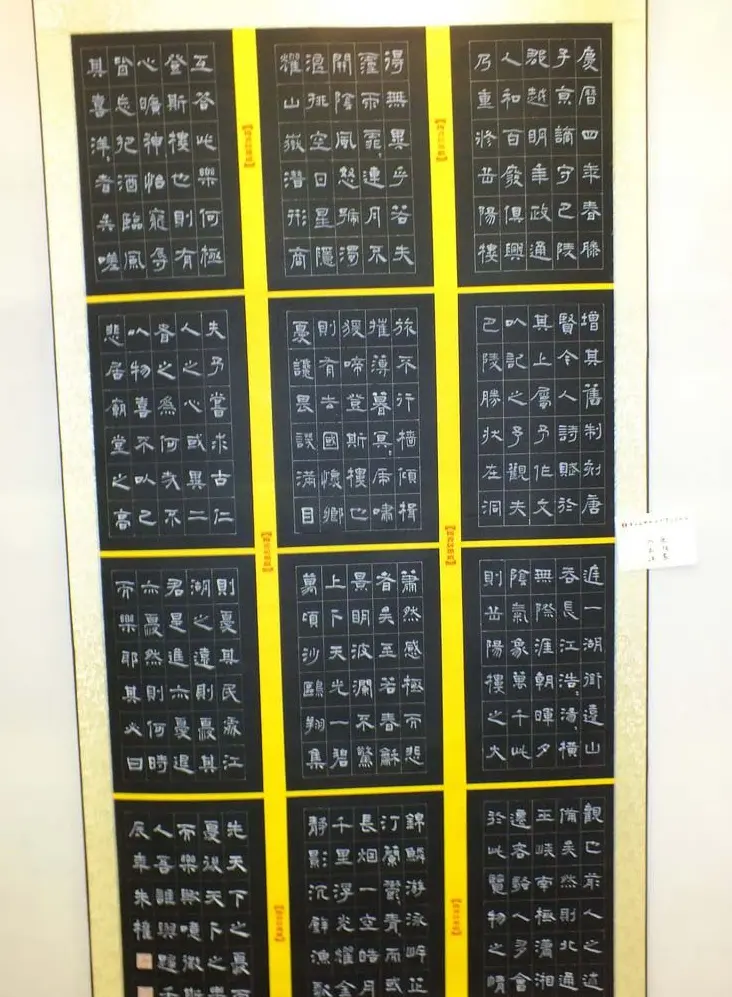 慶曆四年春滕
子京謫守巴陵
郡越明年政通
人和百廢俱興
乃重修岳陽樓
增其舊制刻唐
賢今人詩賦於
其上屬予作文
以記之予觀夫
巴陵勝狀在洞
庭一湖銜遠山
吞長江浩〻湯〻橫
無際涯朝暉夕
陰氣象萬千此
則岳陽樓之大
觀也前人之述
備矣然則北通
巫峽南極瀟湘
遷客騷人多會
於此覽物之情
得無異乎若夫
霪雨霏〻連月不
開陰風怒號濁
浪排空日星隱
耀山嶽潛形商
旅不行檣傾楫
摧薄暮冥〻虎嘯
猨啼登斯樓也
則有去國懷鄉
憂讒畏譏滿目
蕭然感極而悲
者矣至若春龢
景明波瀾不驚
上下天光一碧
萬頃沙鷗翔集
錦鱗游泳岸芷
汀蘭鬱〻青〻而或
長烟一空皓月
千里浮光耀金
靜影沉璧漁歌
互答此樂何極
登斯樓也則有
心曠神怡寵辱
皆忘把酒臨風
其喜洋〻者矣嗟
夫予嘗求古仁
人之心或異二
者之為何哉不
以物喜不以己
悲居廟堂之高
則憂其民處江
湖之遠則憂其
君是進亦憂退
亦憂然則何時
而樂耶其必曰
先天下之憂而
憂後天下之樂
而樂歟噫微斯
人吾誰與歸壬
辰年朱權